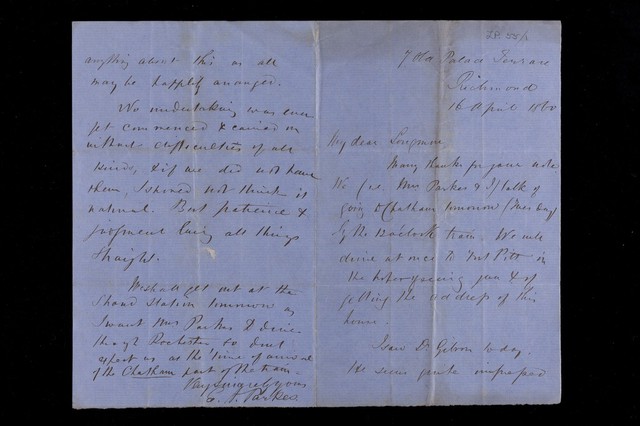 7 Old Palace Terrace
Richmond
16 April 1860
My dear Longmore,
Many thanks for your note
We (i.e. Mrs Parkes & I) talk of
going to Chatham tomorrow (Tuesday)
by the o'clock train. We will
drive at once to Fort Pitt in
the hope of seeing you & of
getting the address of this
house.
I saw Dr. Gibson to day.
He seems quite prepared
anything about this as all
may be happily arranged.
No undertaking was ever
yet commenced & carried on
without difficulties of all
kinds, & if we did not have
them, I should not think it
natural. But patience &
judgment bring all things
straight.
We shall get out at the
Strood Station tomorrow as
I want Mrs Parkes to drive
through Rochester so don't
expect us at the time of arrival
of the Chatham part of the train.
Very sincerely yours
E. A. Parkes